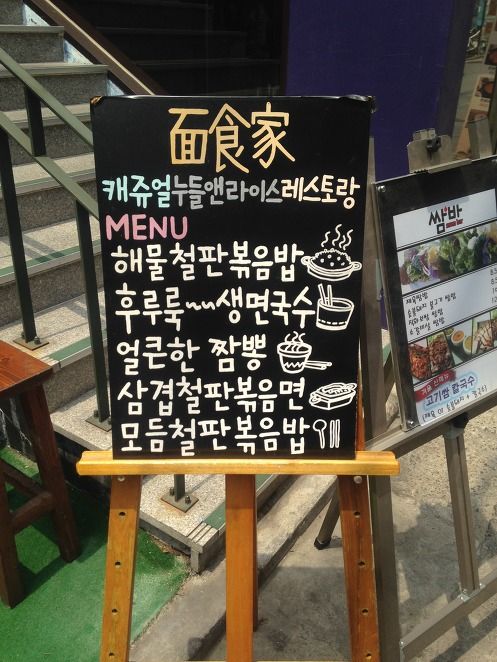 面食家
캐쥬얼누들앤라이스레스토랑
MENU
해물철판볶음밥
후루룩~~생면국수
얼큰한 짬뽕
삼겹철판볶음면
모듬철판볶음밥
쌈밥
제육쌈밥
고기쌈 칼국수